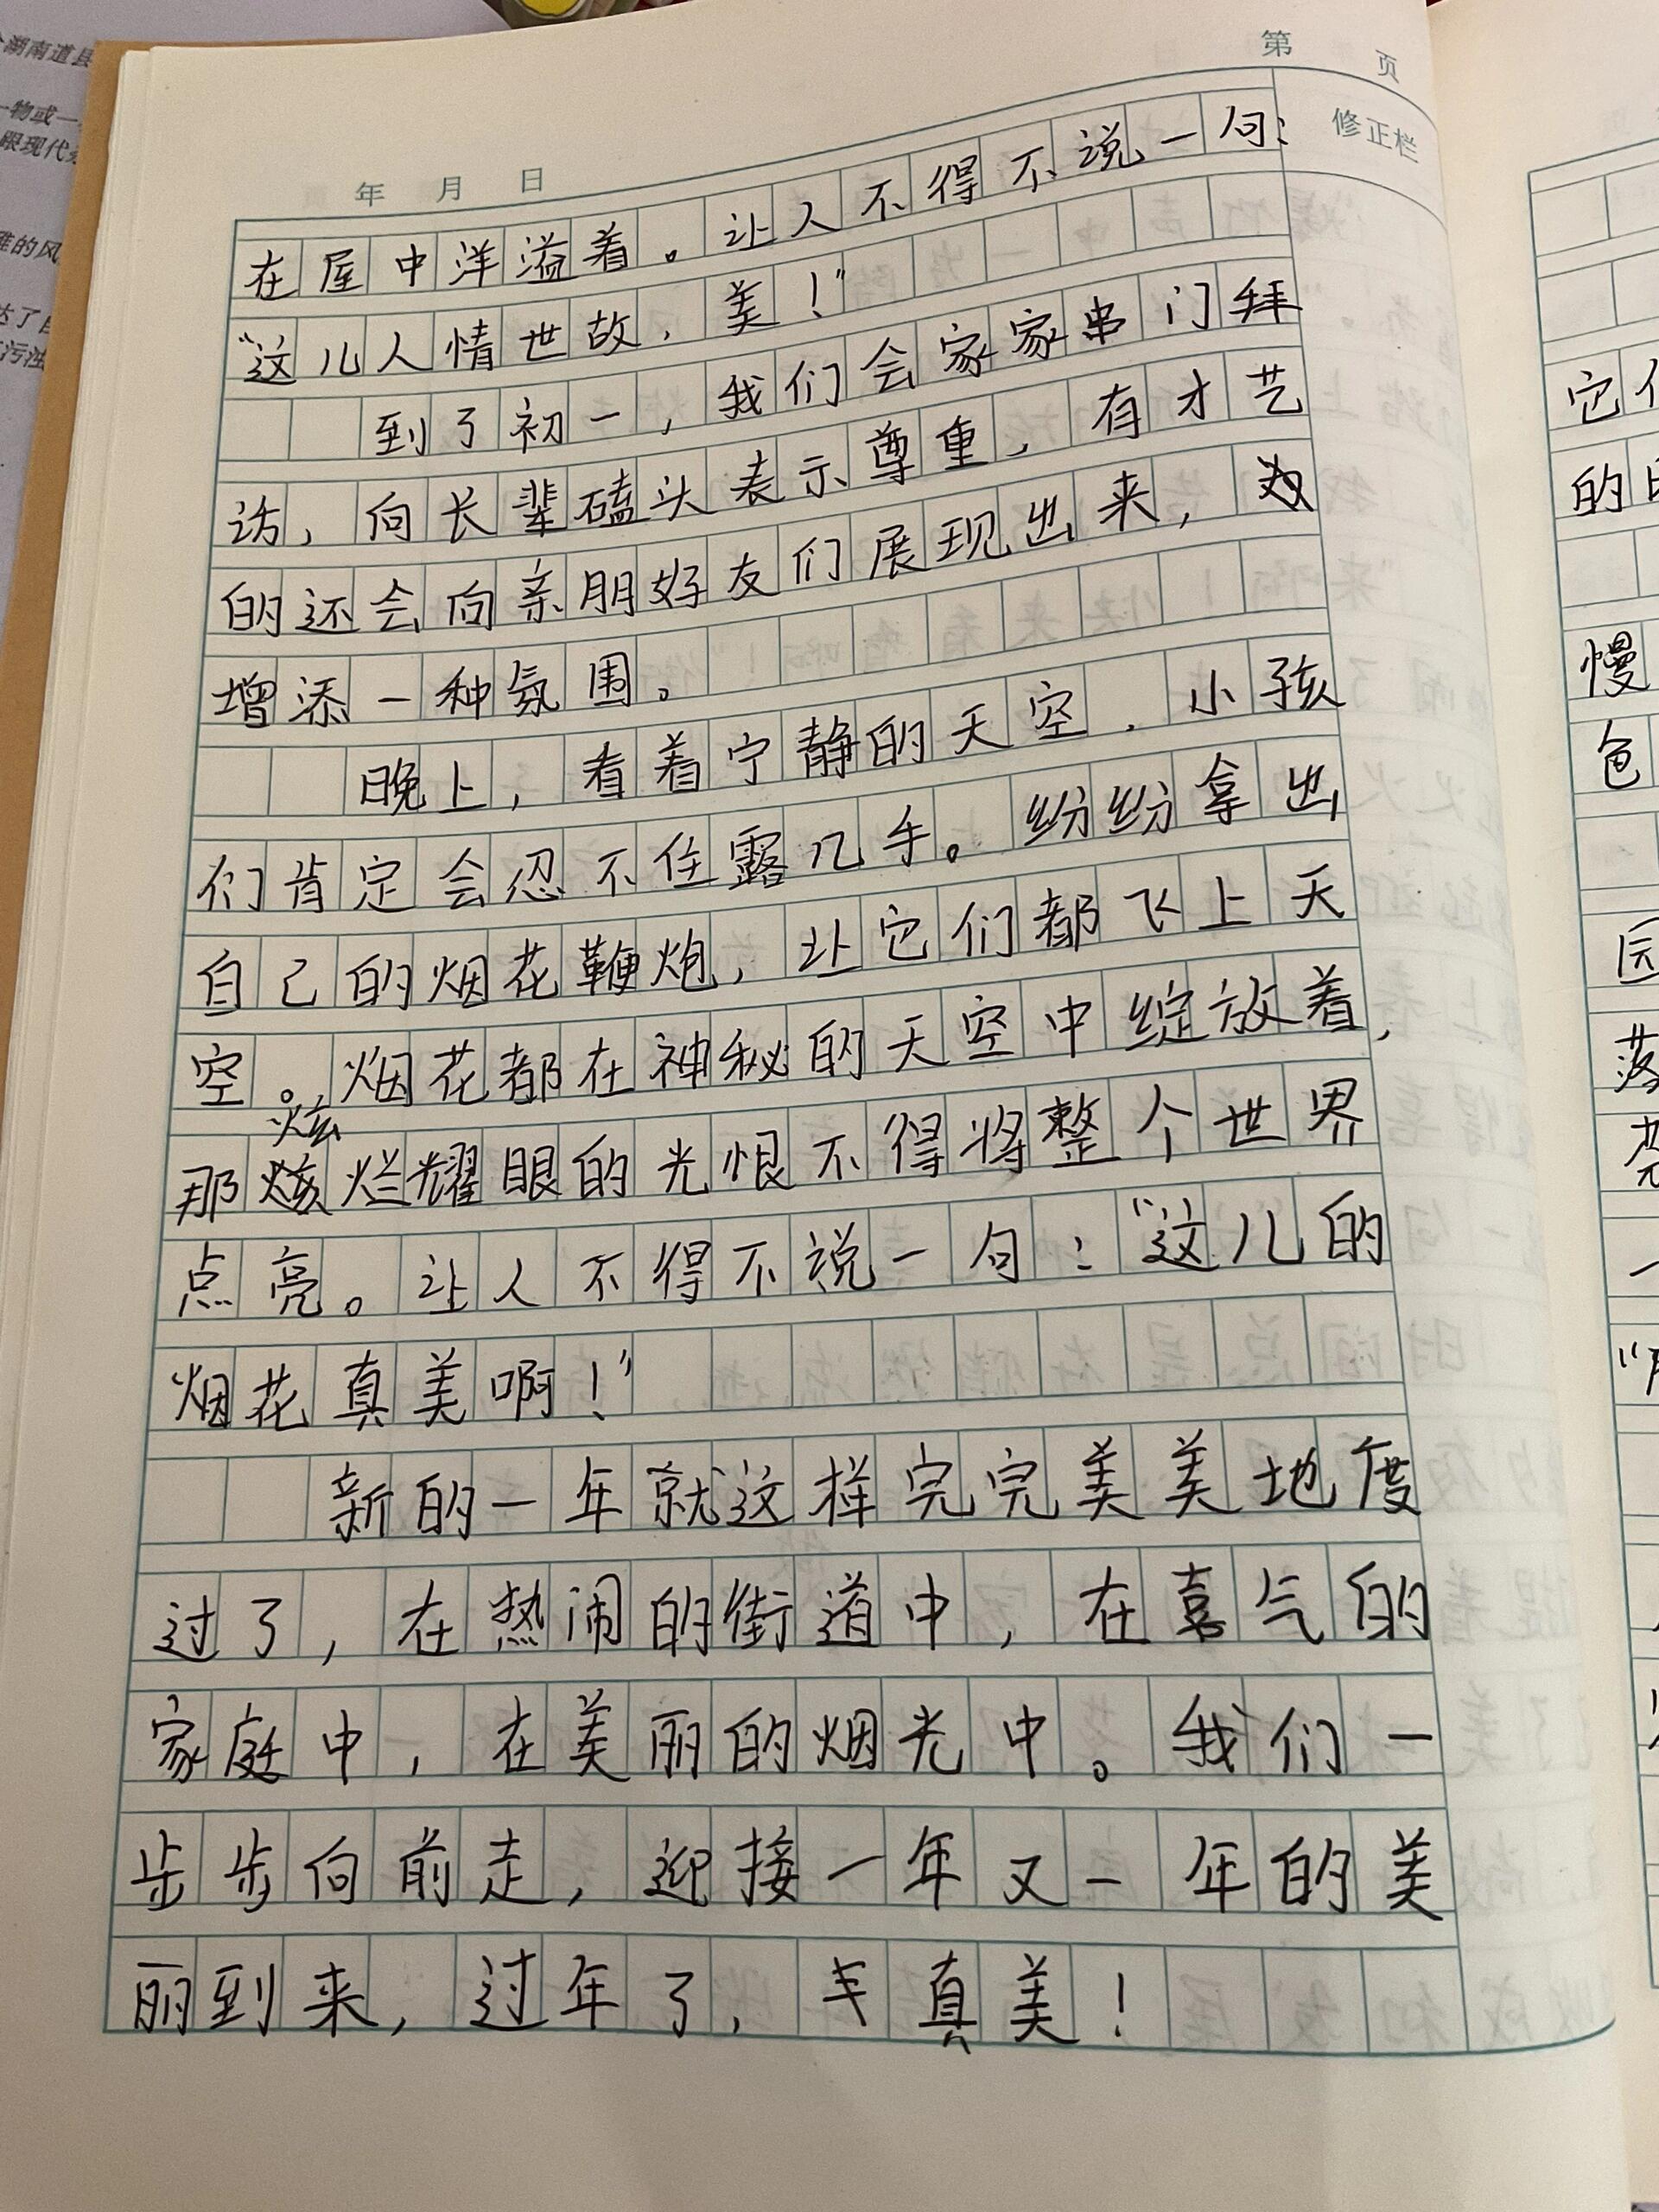 第 页
修正栏
年 月 日
在屋中洋溢着。让人不得不说一句：
“这儿人情世故，美！”
到了初一，我们会家家串门拜
访，向长辈磕头表示尊重，有才艺
的还会向亲朋好友们展现出来，为
增添一种氛围。
晚上，看着宁静的天空，小孩
们肯定会忍不住露几手。纷纷拿出
自己的烟花鞭炮，让它们都飞上天
空。烟花都在神秘的天空中绽放着，
炫
那烂耀眼的光恨不得将整个世界
点亮。让人不得不说一句：“这儿的
烟花真美啊！”
新的一年就这样完完美美地度
过了，在热闹的街道中，在喜气的
家庭中，在美丽的烟光中。我们一
步步向前走，迎接一年又一年的美
丽到来，过年了，真美！
湖南道县
物或一
跟现代
雅的风
达了
污浊
它
的
慢
色
落
一